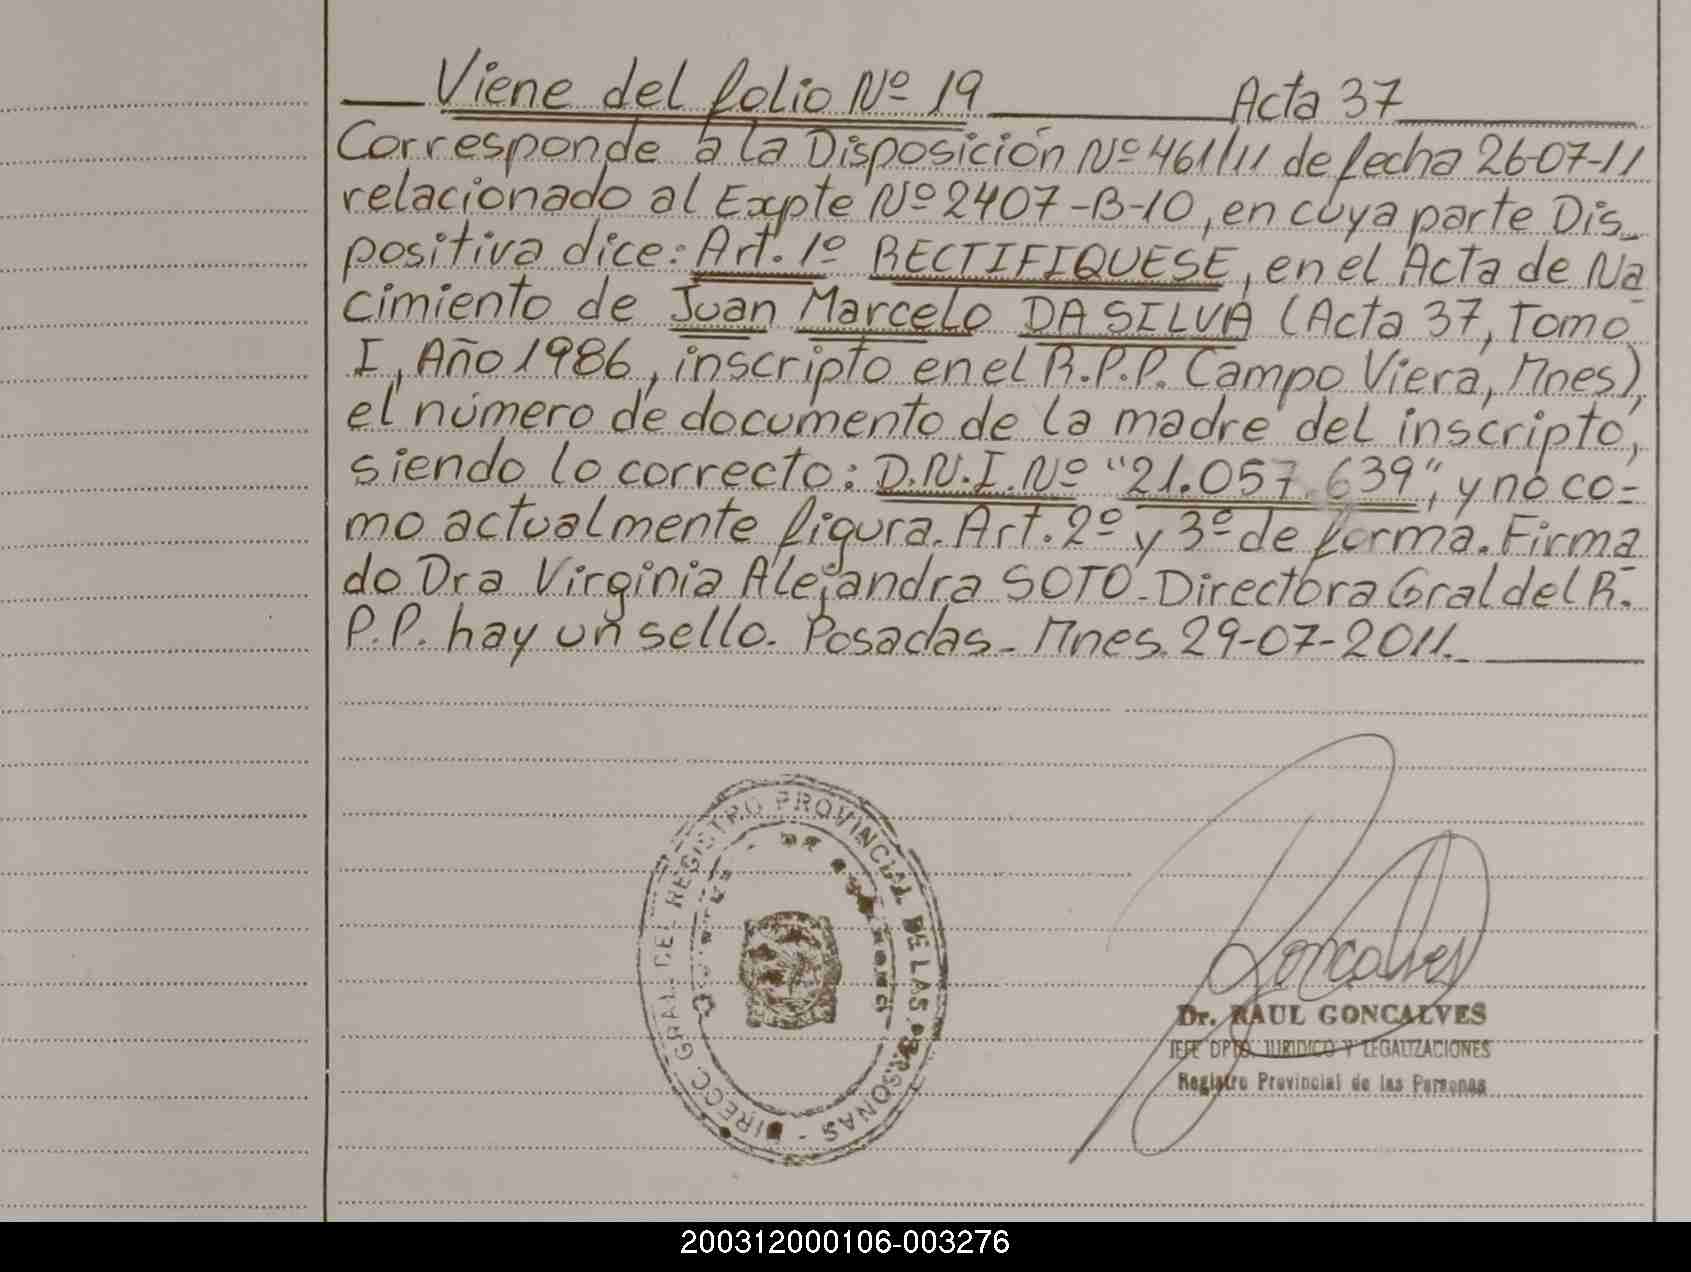 Viene del folio Nº 19 Acta 37
Corresponde a la Disposición Nº 461/11 de fecha 26-07-11
relacionado al Expte Nº 2407-B-10, en cuya parte Dis-
positiva dice: Art. 1º RECTIFIQUESE, en el Acta de Na
cimiento de Juan Marcelo DA SILVA (Acta 37, Tomo
I, Año 1986, inscripto en el R.P.P. Campo Viera, Mnes),
el número de documento de la madre del inscripto,
siendo lo correcto: D.N.I. Nº "21.057.639", y no co=
mo actualmente figura. Art. 2º y 3º de forma. Firma
do Dra Virginia Alejandra SOTO - Directora Gral del R.
P.P. hay un sello. Posadas - Mnes. 29-07-2011.
DIRECC. GRAL. DEL REGISTRO PROVINCIAL DE LAS PERSONAS -
Goncalves
Dr. RAUL GONCALVES
JEFE DPTO. JURIDICO Y LEGALIZACIONES
Registro Provincial de las Personas
200312000106-003276